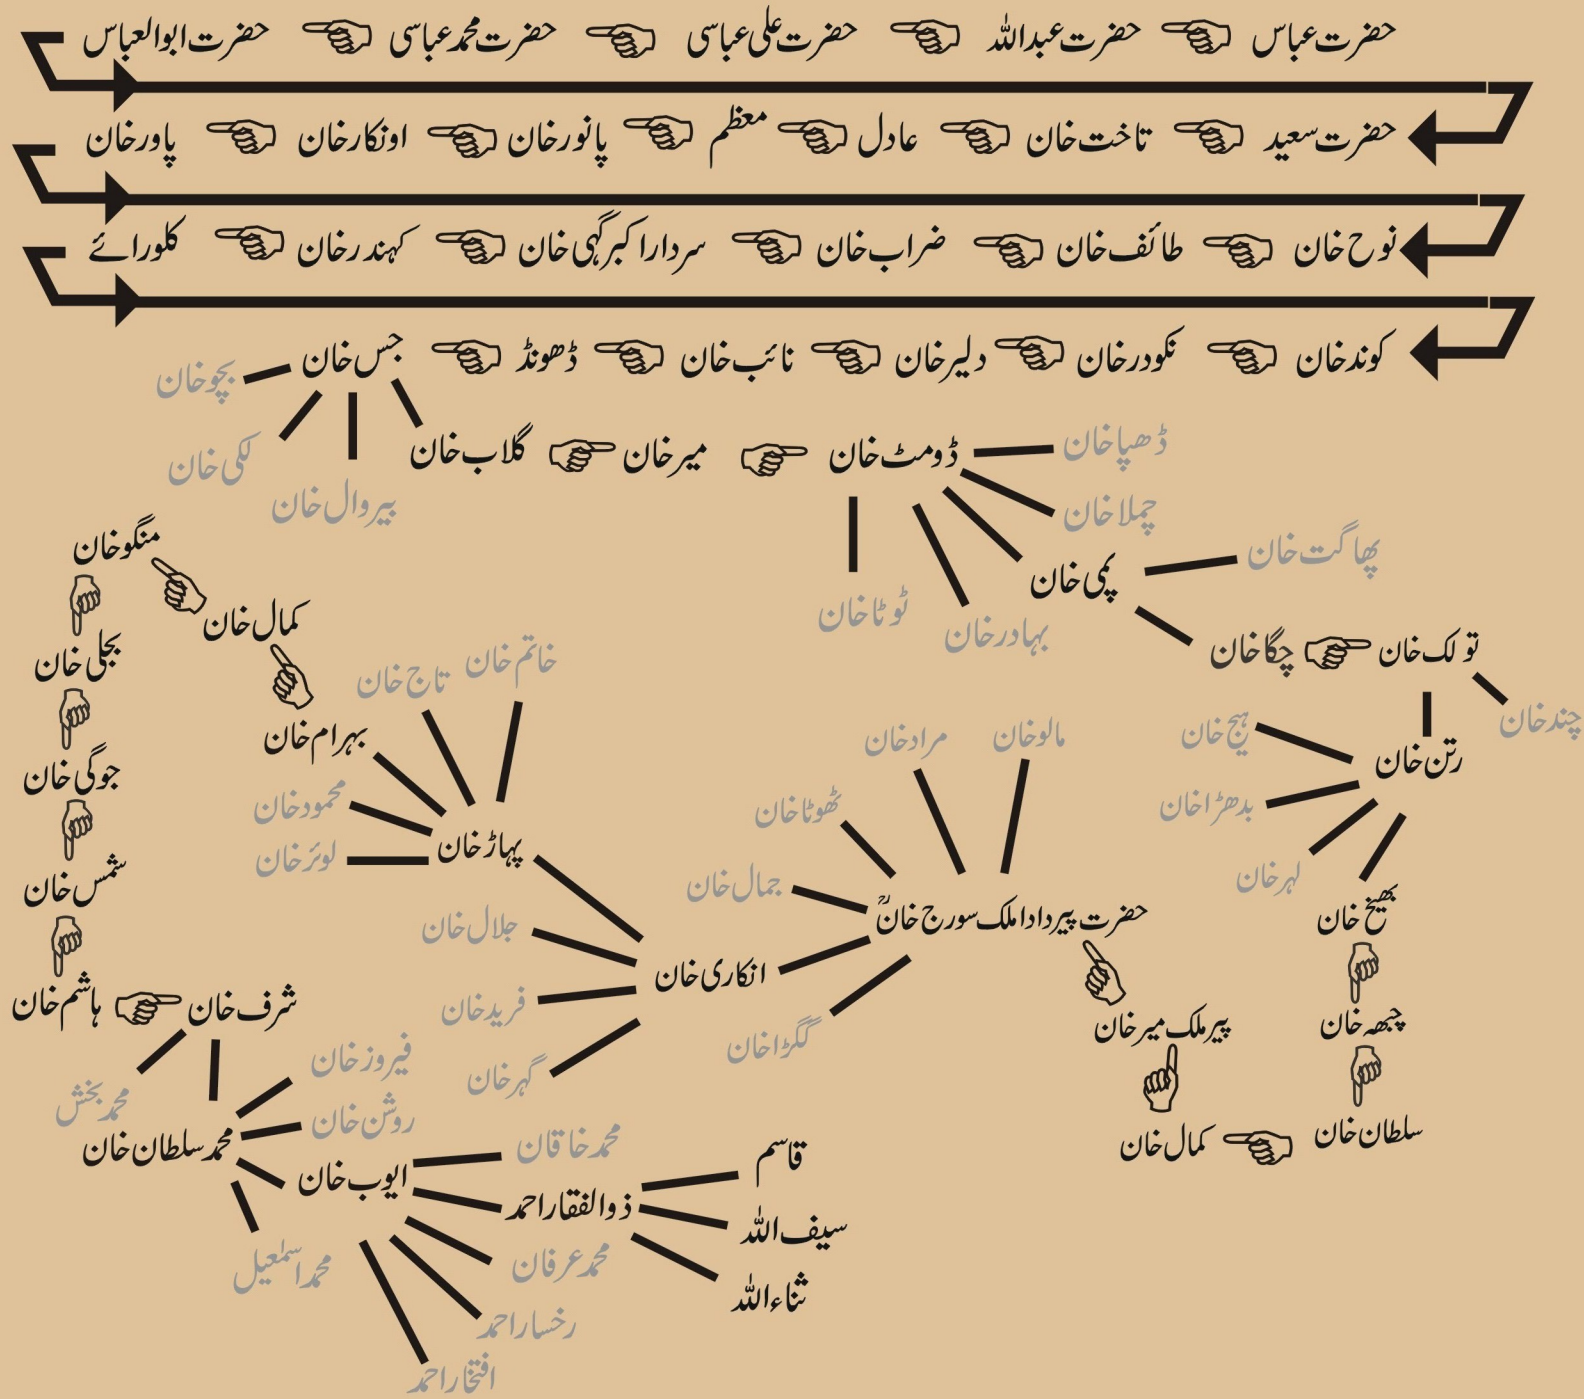 حضرت عباس حضرت عبداللہ حضرت علی عباسی حضرت محمد عباسی حضرت ابوالعباس
حضرت سعید تاخت خان عادل معظم پانور خان اونکار خان پاور خان
نوح خان طائف خان ضراب خان سردار اکبر گہی خان کہندر خان کلورائے
کوند خان نکودر خان دلیر خان نائب خان ڈھونڈ جس خان
بجو خان
لکی خان
بیروال خان
گلاب خان میر خان ڈومٹ خان
ڈھپا خان
چملا خان
پمی خان
بہادر خان
ٹوٹا خان
پھاگت خان
چگا خان تولک خان
چند خان
رتن خان
ہیج خان
بدھڑا خان
لہر خان
بھیخ خان
چبھہ خان
سلطان خان کمال خان
پیر ملک میر خان
حضرت پیر دادا ملک سورج خانؒ
مالو خان
مراد خان
ٹھوٹا خان
جمال خان
گگڑا خان
انکاری خان
جلال خان
فرید خان
گہر خان
پہاڑ خان
خاتم خان
تاج خان
محمود خان
لوئر خان
بہرام خان
کمال خان
منگو خان
بجلی خان
جوگی خان
شمس خان
ہاشم خان شرف خان
محمد بخش
محمد سلطان خان
فیروز خان
روشن خان
ایوب خان
محمد اسمٰعیل
محمد خاقان
ذوالفقار احمد
محمد عرفان
رخسار احمد
افتخار احمد
قاسم
سیف اللہ
ثناء اللہ